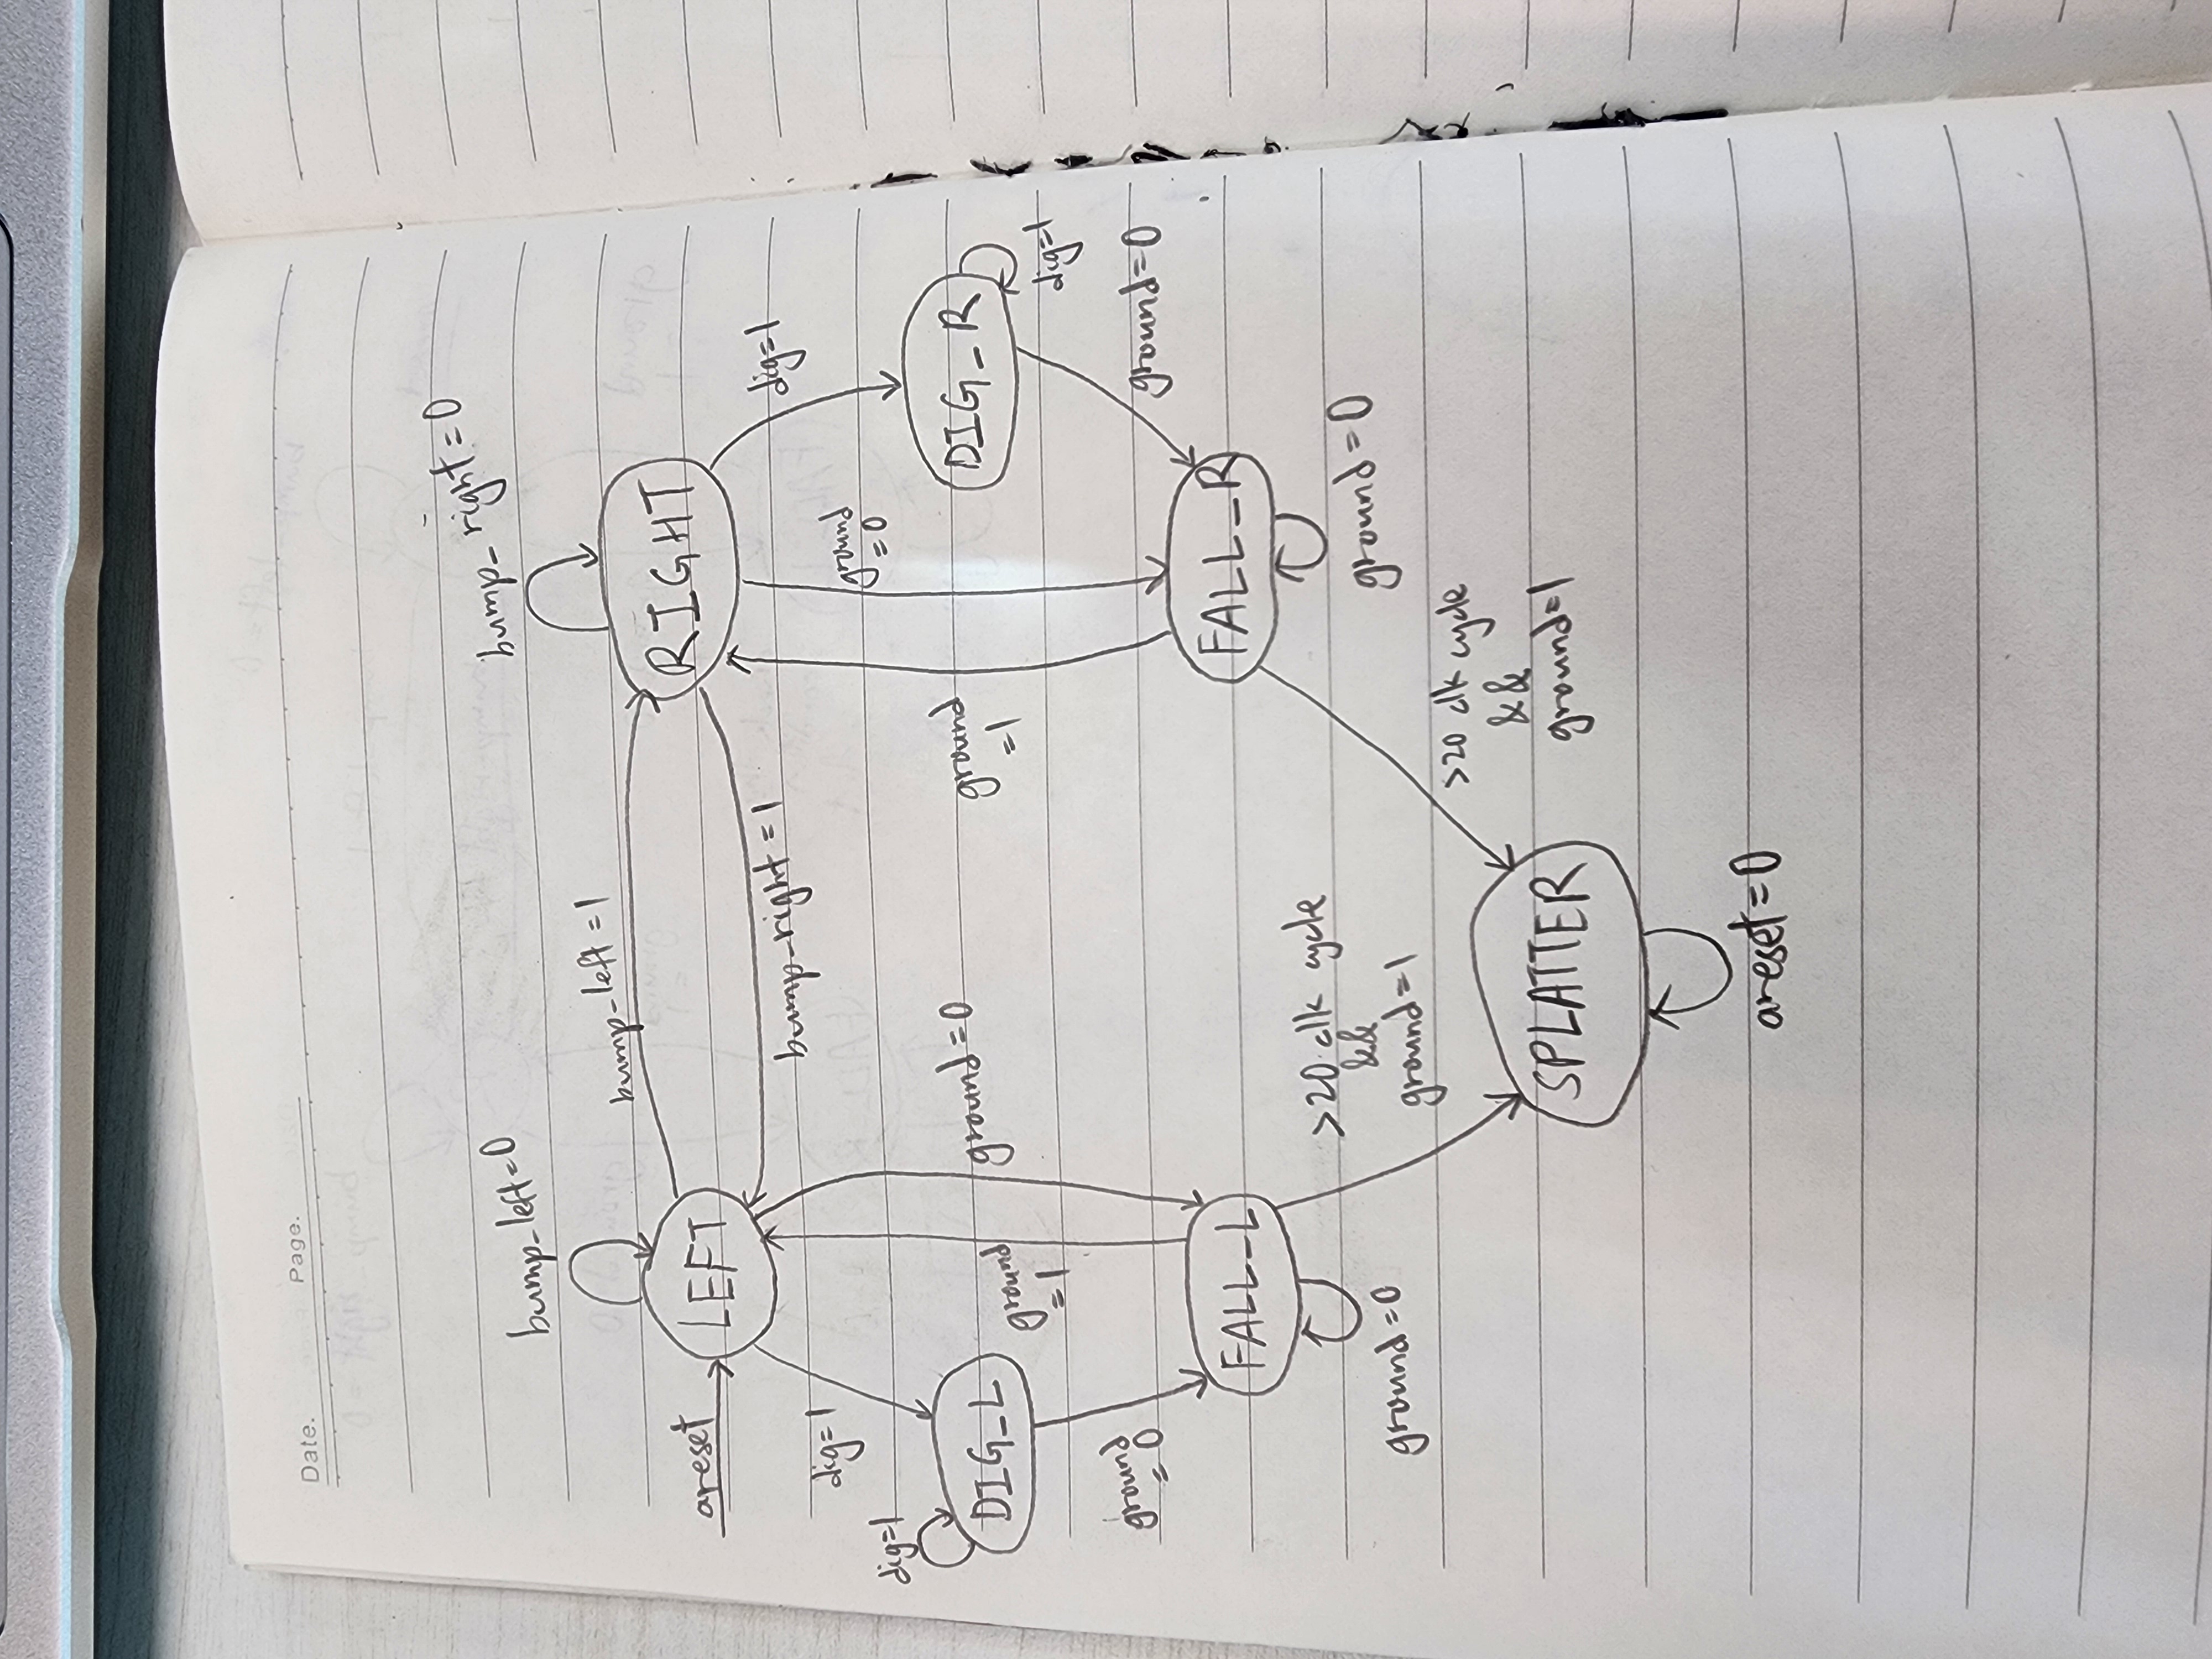 Date. Page.
bump_right=0
bump_left=0
bump_left=1
RIGHT
areset
LEFT
bump_right=1
dig=1
dig=1
ground
=0
dig=1
ground=0
ground
=1
DIG_R
DIG_L
ground
=1
dig=1
ground
=0
ground=0
FALL_L
FALL_R
>20 clk cycle
&&
ground=1
ground=0
ground=0
>20 clk cycle
&&
ground=1
SPLATTER
areset=0